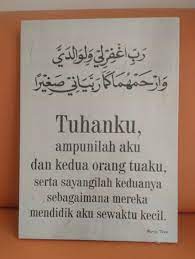 رَبِّ اغْفِرْ لِي وَلِوَالِدَيَّ
وَارْحَمْهُمَا كَمَا رَبَّيَانِي صَغِيرًا
Tuhanku,
ampunilah aku
dan kedua orang tuaku,
serta sayangilah keduanya
sebagaimana mereka
mendidik aku sewaktu kecil.